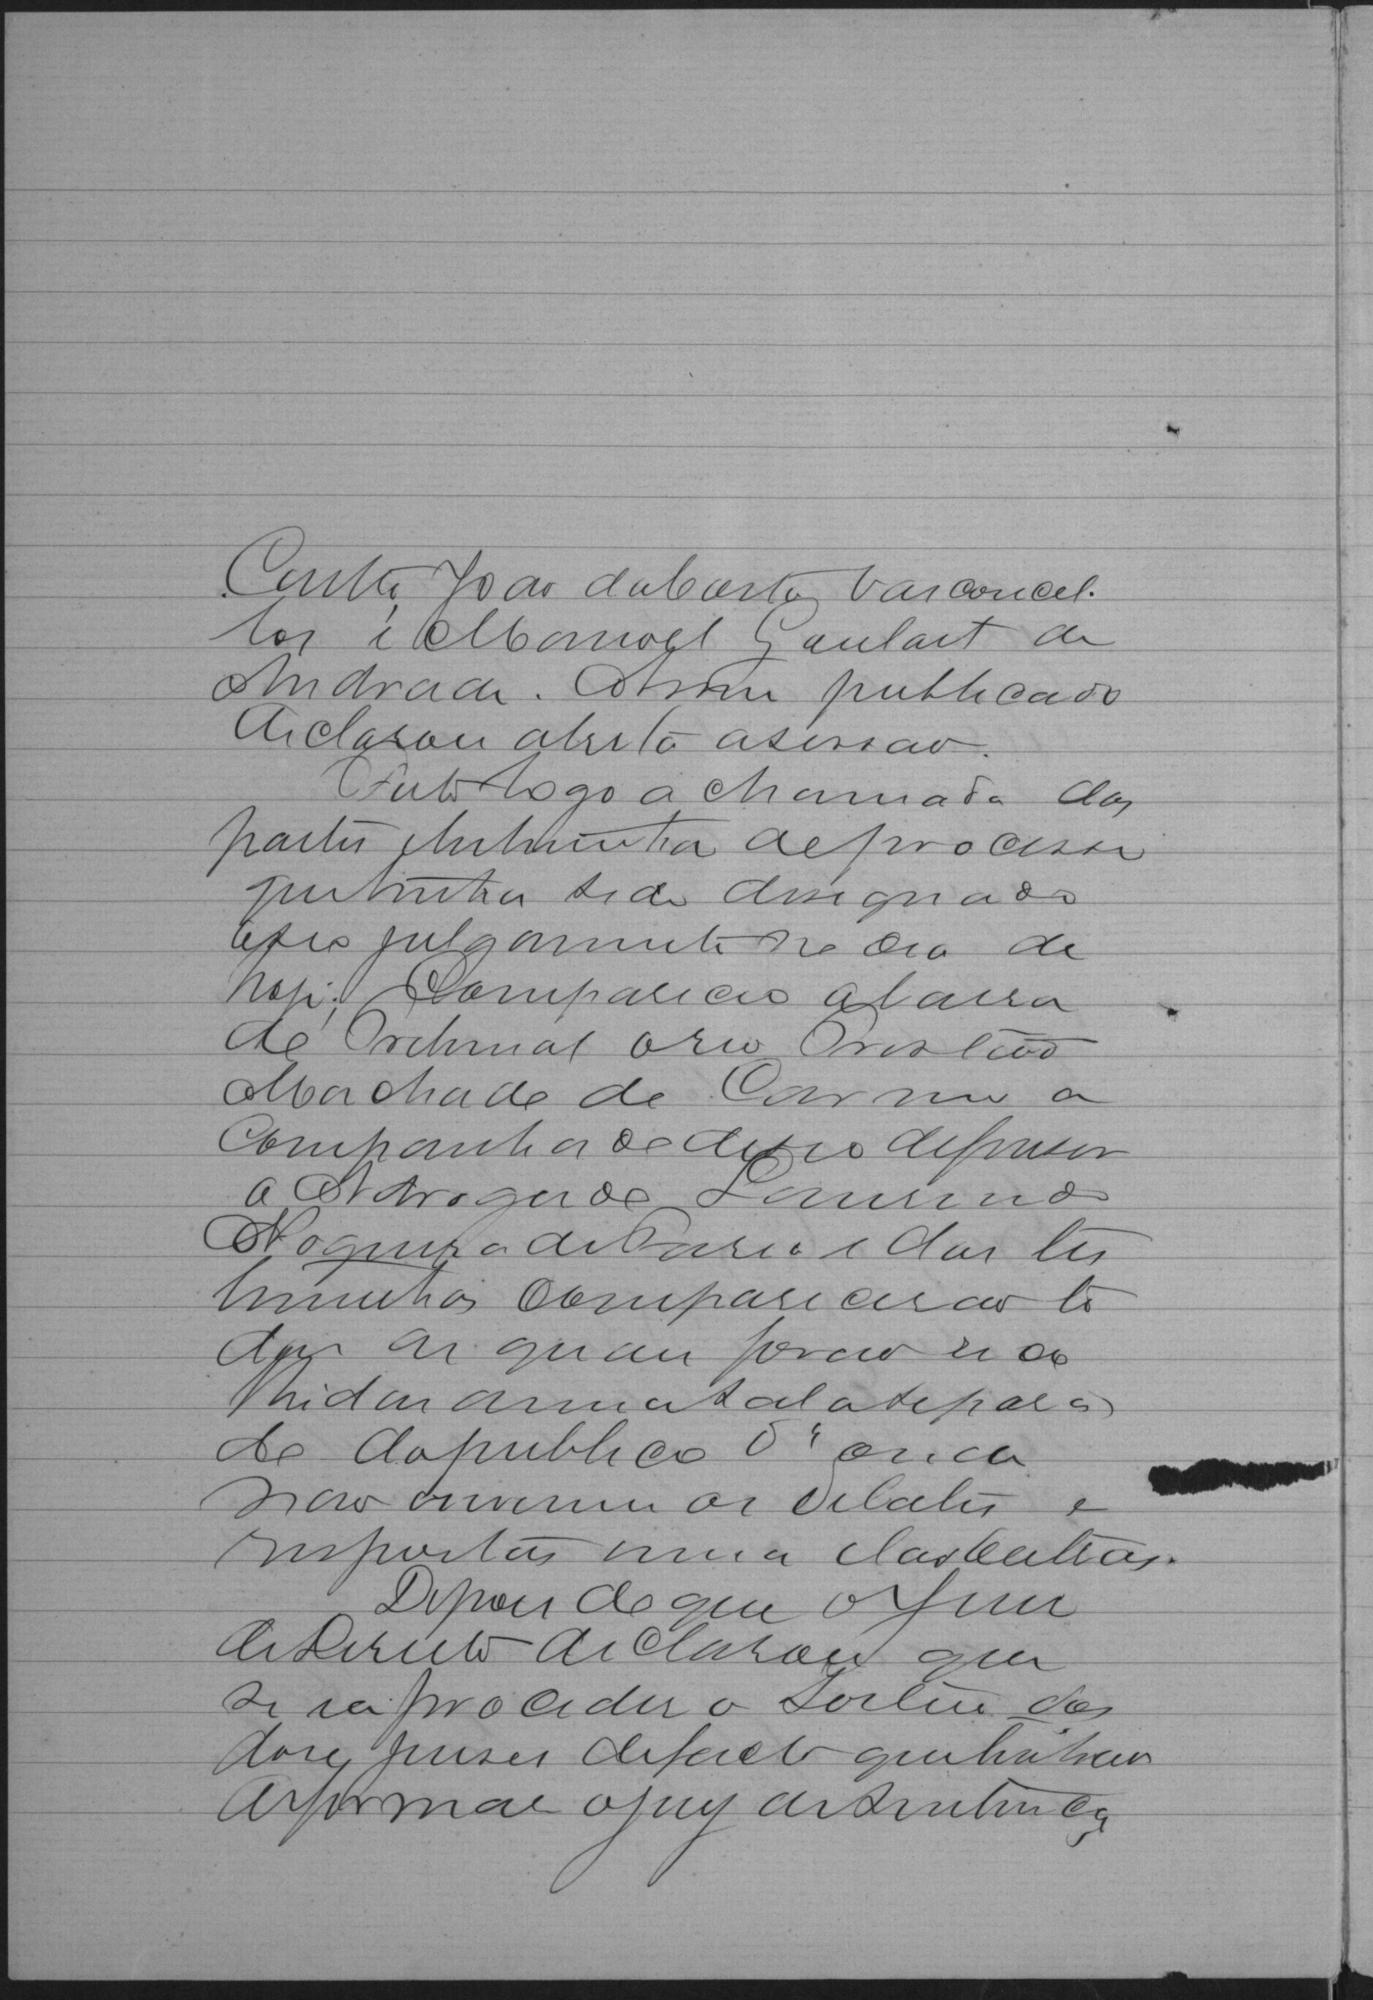 Costa, João da Costa Vasconcel-
los e Manoel Goulart de
Andrade. Assim publicado
declarou aberta a sessão.
Feito logo a chamada das
partes e testemunhas do processo
que tinha sido designado
a seu julgamento no dia de
hoje; Compareceo a barra
do Tribunal o reo Cristião
Machado do Carmo a
companhado de seo defensor
o Advogado Lourenço
Nogueira de Faria e das tes
temunhas compareceram to
das as quaes foram reco
lhidas a uma sala separa
da do publico d'onde
não ouvissem os debates e
respostas umas das outras.
Depois do que o Juiz
de Direito declarou que
se ia proceder o sorteio dos
dose juises de facto que tinham
de formar o jury de sentença